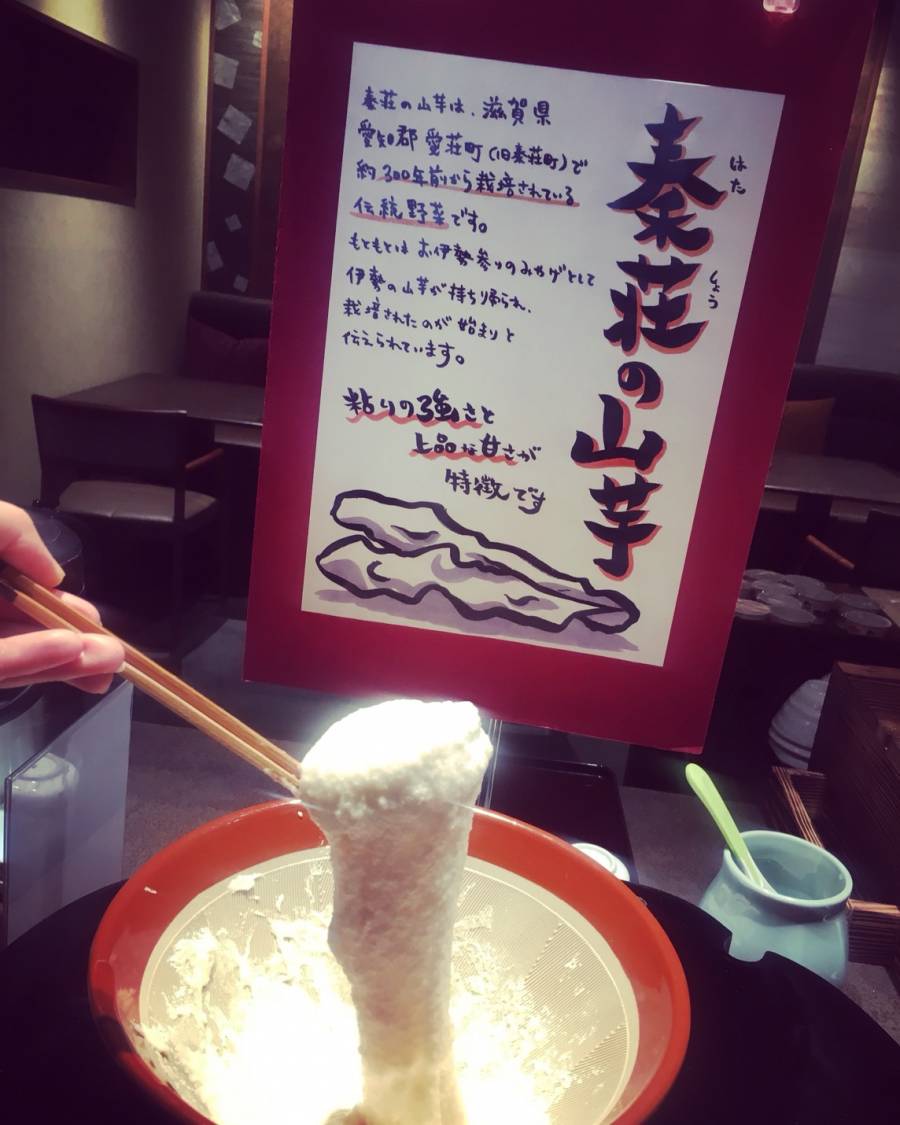 秦荘の山芋
はた
しょう
秦荘の山芋は、滋賀県
愛知郡愛荘町(旧秦荘町)で
約300年前から栽培されている
伝統野菜です。
もともとは お伊勢参りのみやげとして
伊勢の山芋が持ち帰られ、
栽培されたのが始まりと
伝えられています。
粘りの強さと
上品な甘さが
特徴です